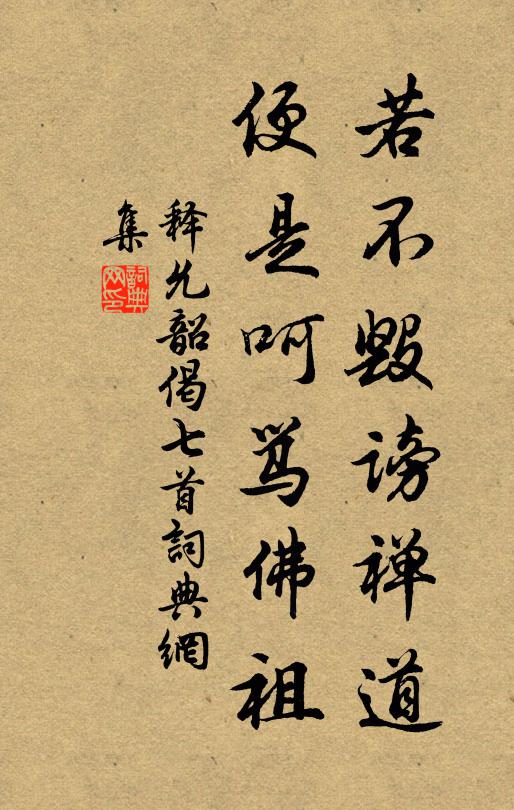 若不毁谤禅道
便是呵骂佛祖
释允韶偈七首詞典網
集
詞典网印